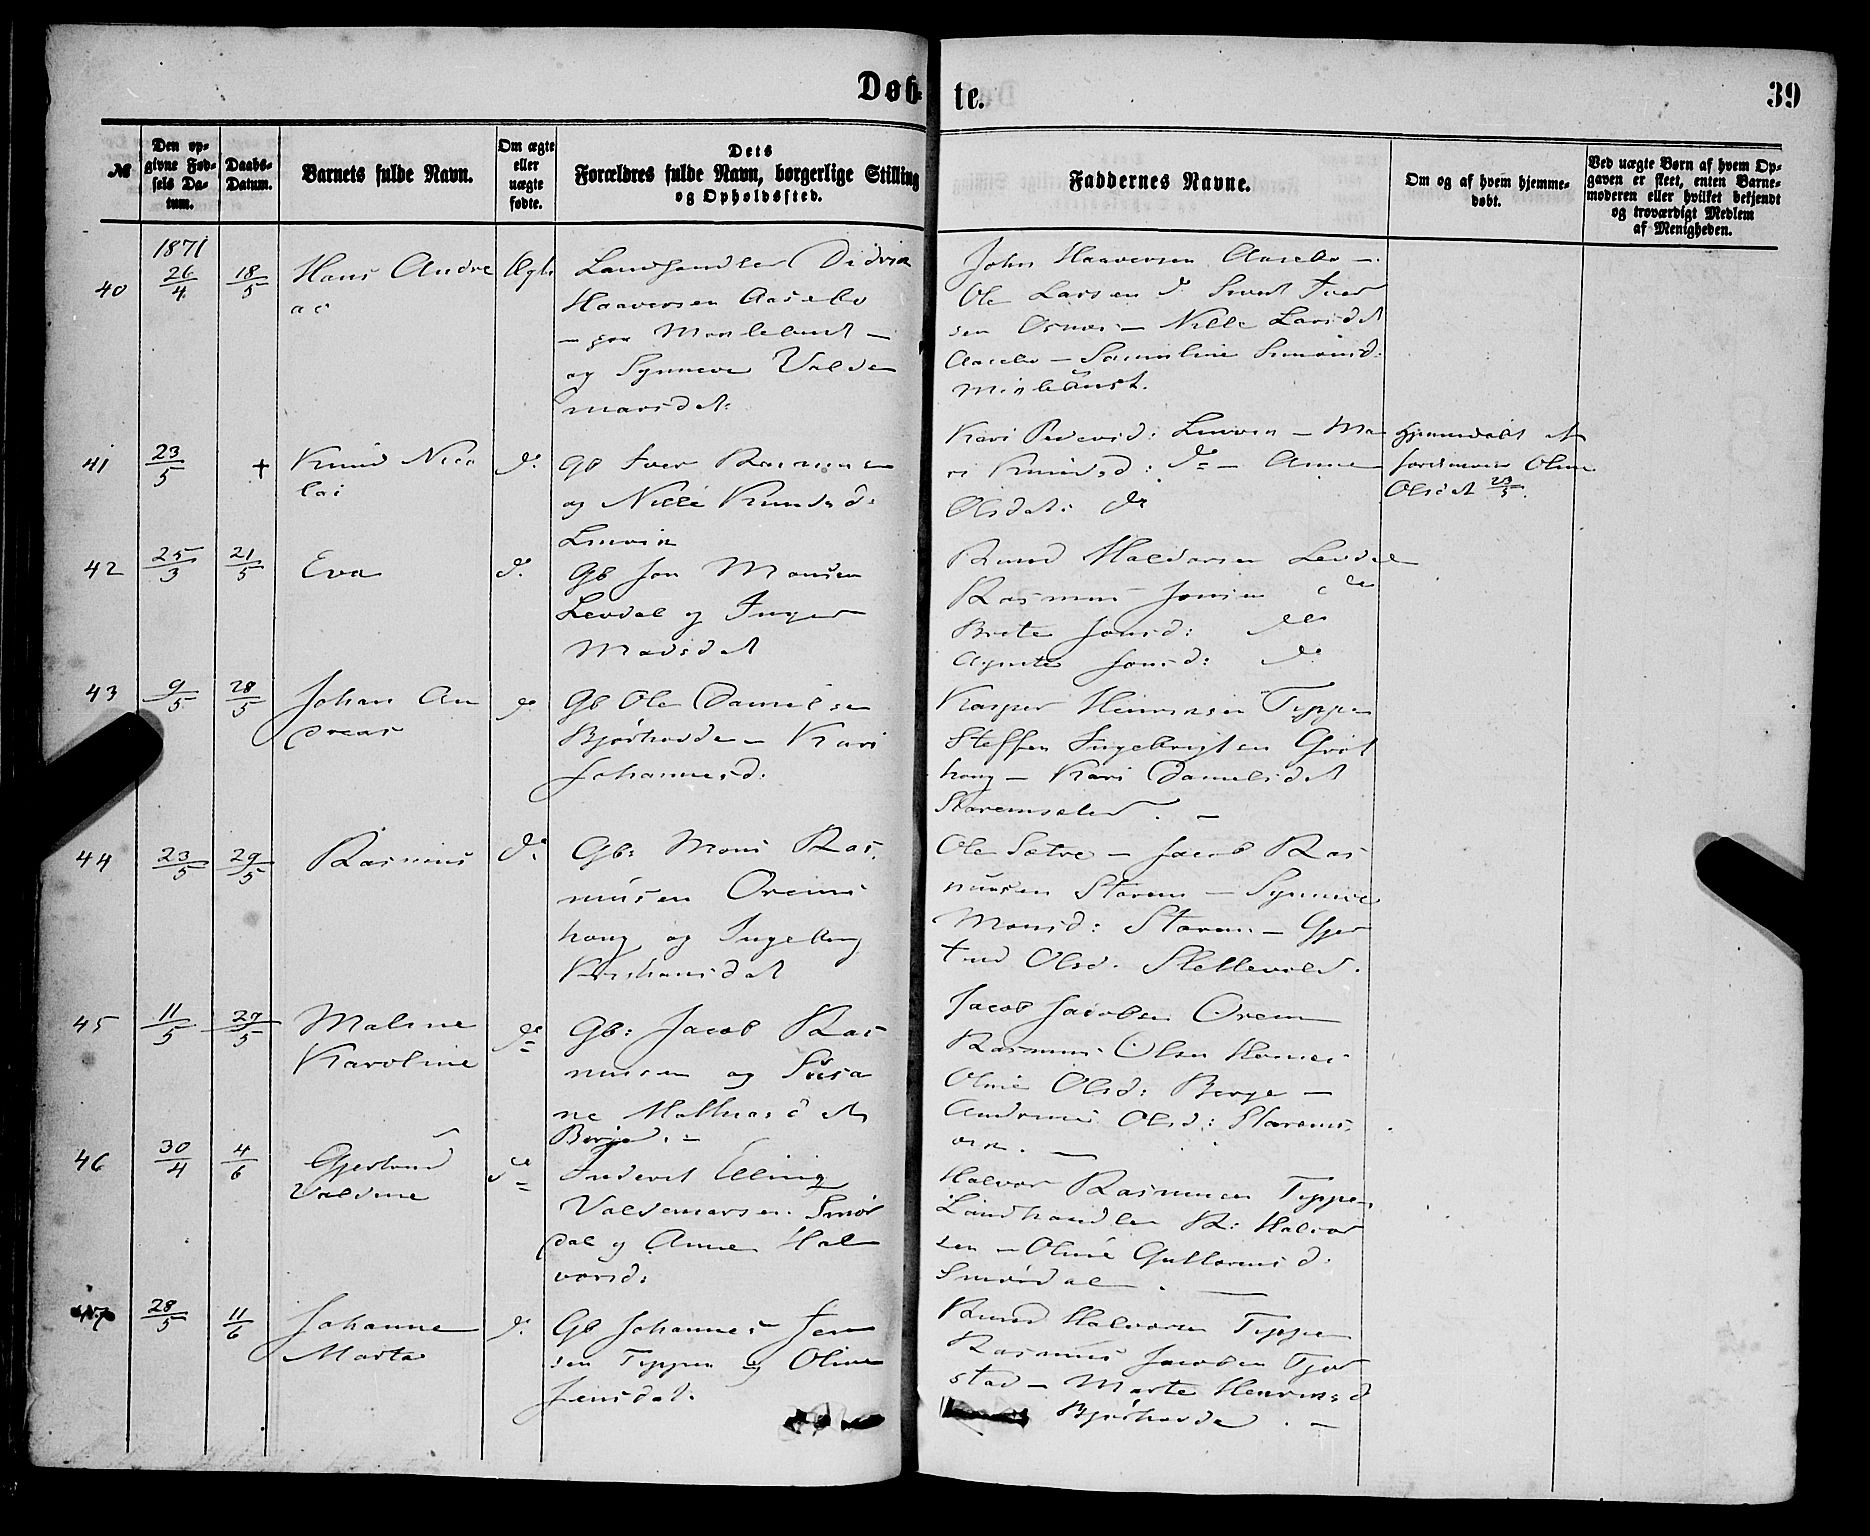 Døb-
te.
39
№
Den op-
givne Fød-
sels Da-
tum.
Daabs-
Datum.
Barnets fulde Navn.
Om ægte
eller
uægte
fødte.
Dets
Forældres fulde Navn, borgerlige Stilling
og Opholdssted.
Faddernes Navne.
Om og af hvem hjemme-
døbt.
Ved uægte Børn af hvem Op-
gaven er skeet, enten Barne-
moderen eller hvilket bekjendt
og troværdigt Medlem
af Menigheden.
1871
40
26/4
18/5
Hans Andre
as
Ægte
Landhandler Didrik
Haaversen Aasebø
og Synneve Valde
marsdat:
John Haaversen Aasebø —
Ole Larsen do Sivert Iver
sen Osnes — Nille Larsdat
Aasebø —
41
23/5
+
Knud Nico
lai
do
Gb Iver Rasmusen
og Nille Knudsd:
Kari Pedersd: — Ma
ri Knudsd: do — Anne
Olsdat: do
Hjemmedøbt af
Jordmoder Oline
Olsdat 23/5.
42
25/3
21/5
Eva
do
Gb Jon Monsen
Levdal og Inger
Madsdat
Knud Haldorsen Levdal
Rasmus Jonsen do
Brite Jonsd: do
Agnete Jonsd: do
43
9/5
28/5
Johan An
dreas
do
Gb Ole Danielsen
Bjørhovde — Kari
Johannesd.
Kasper Henriksen Typpen
Steffen Ingebrigtsen Grøt
houg — Kari Danielsdat
Staremsæter. —
44
23/5
29/5
Rasmus
do
Gb: Mons Ras
musen Orems
houg og Ingeborg
Kristiansdat
Ole Sætre — Jacob Ras
musen Starem — Synneve
Monsd: Starem — Gjer
trud Olsd. Slettevold.
45
11/5
29/5
Maline
Karoline
do
Gb: Jacob Ras
musen og Susa
ne Mathiasdat
Jacob Jacobsen Orem
Rasmus Olsen
Oline Olsd: Berge —
Olsd: Starems
46
30/4
4/6
Gjertrud
Valdine
do
Inderst Elling
Valdemarsen Smør
dal og Anne Hal
vorsd:
Halvor Rasmusen Typpen,
Landhandler R: Halvor
sen — Oline Guttormsd:
Smørdal. —
47
28/5
11/6
Johanne
Marta
do
Gb Johannes Jen
sen Typpen og Oline
Jensdat.
Knud Halvorsen Typpen
Rasmus Jacobsen
stad — Marte Henriksd
Bjørhovde. —